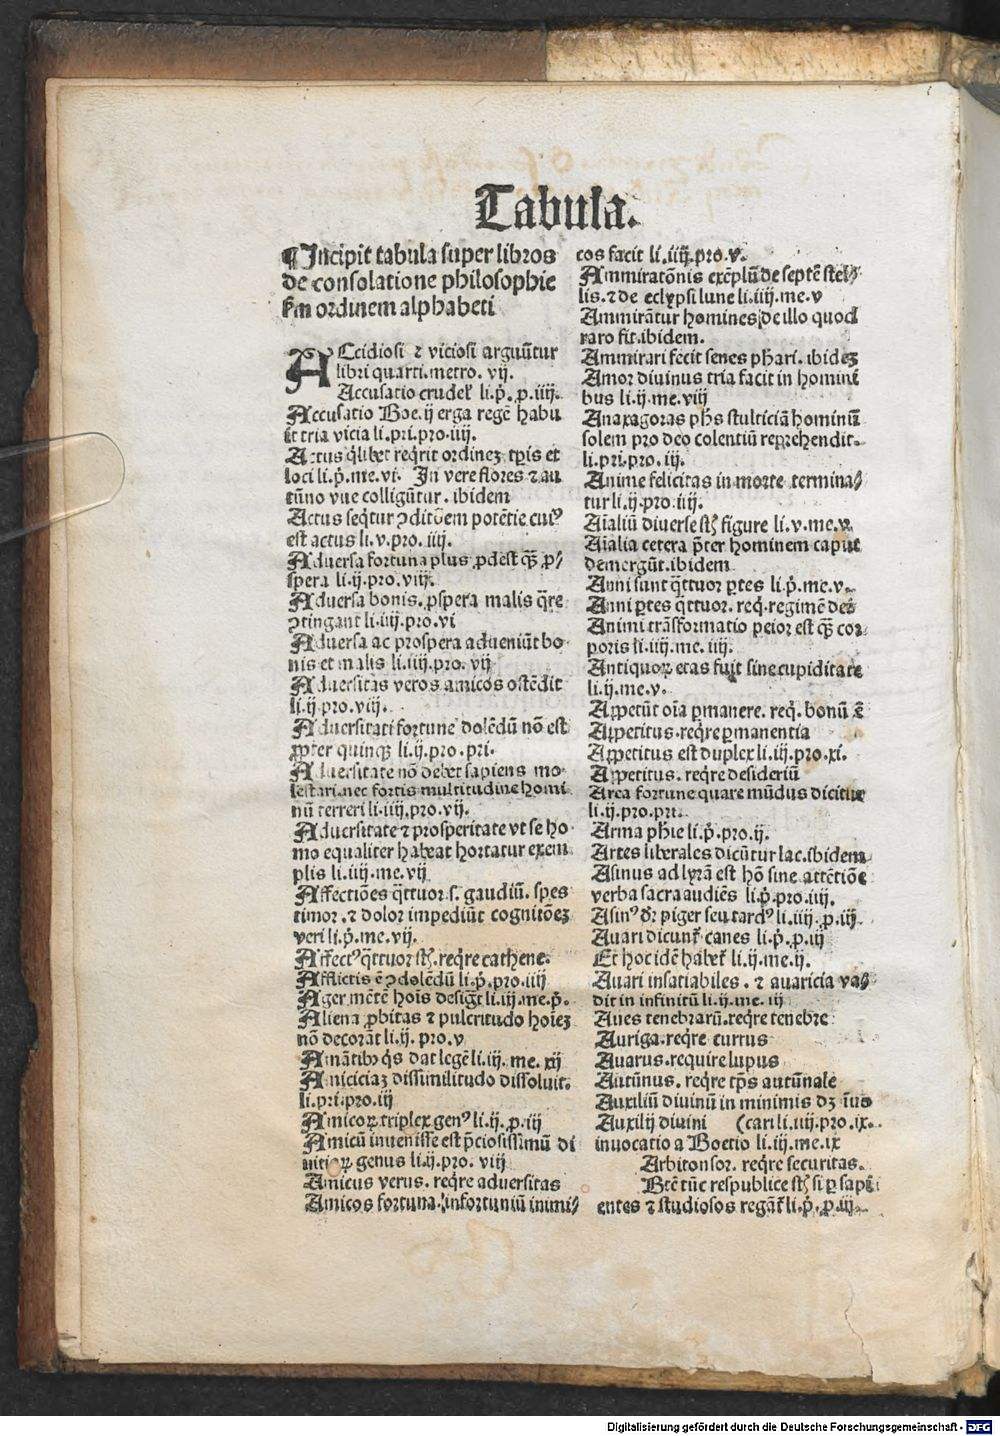 Tabula.
¶Incipit tabula super libros
de consolatione philosophie
ẜm ordinem alphabeti
ACcidiosi ⁊ viciosi arguūtur
libri quarti. metro. vij.
Accusatio crudel' li.p̄. p. iiij.
Accusatio Boe. ij erga regē habu
it tria vicia li. pri. pro. iiij.
Actus q̄libet reqͥrit ordineꝫ tꝑis et
loci li.p̄.me.vi. In vere flores ⁊ au
tūno vue colligūtur. ibidem
Actus seqͥtur ꝯditōem potētie cuiꝰ
est actus li. v. pro. iiij.
Aduersa fortuna plus ꝓdest qꝫ̄ ꝓ/
spera li.ij.pro.viij.
Aduersa bonis. ꝓspera malis q̄re
ꝯtingant li.iiij.pro.vi
Aduersa ac prospera adueniūt bo
nis et malis li.iiij.pro. vij
Aduersitas veros amicos ostēdit
li.ij.pro.viij.
Aduersitati fortune dolēdū nō est
ꝓpter quinqꝫ li.ij.pro.pri.
Aduersitate nō debet sapiens mo
lestari. nec fortis multitudine homi
nū terreri li.iiij.pro.vij.
Aduersitate ⁊ prosperitate vt se ho
mo equaliter habeat hortatur exem
plis li.iiij.me.vij
Affectiōes qͣttuor .s. gaudiū. spes
timor. ⁊ dolor impediūt cognitōeꝫ
veri li.p̄.me.vij.
Affectꝰ qͣttuor st̄. reqͥre cathene.
Afflictis ē ꝯdolēdū li.p̄.pro.iiij
Ager mētē hoīs desigͣt li.iij.me.p̄.
Aliena ꝓbitas ⁊ pulcritudo hoīeꝫ
nō decorāt li.ij. pro.v
Amātibꝰ qͥs dat legē li.iij. me. xij
Amiciciaꝫ dissimilitudo dissoluit.
li.pri.pro.iij
Amicoꝝ triplex genꝰ li.ij.p.iij
Amicū inuenisse est p̄ciosissimū di
uitiaꝝ genus li.ij.pro. viij
Amicus verus. reqͥre aduersitas
Amicos fortuna. infortuniū inimi/
cos facit li.iiij.pro.v.
Ammiratōnis exēplū de septē stel/
lis. ⁊ de eclypsi lune li.iiij.me.v
Ammirātur homines de illo quod
raro fit. ibidem.
Ammirari fecit senes phari. ibideꝫ
Amor diuinus tria facit in homini
bus li.ij.me.viij
Anaxagoras ph̄s stulticiā hominū
solem pro deo colentiū reprehendit.
li.pri.pro.iij.
Anime felicitas in morte termina/
tur li.ij.pro.iiij.
Aīaliū diuerse st̄ figure li.v.me.v.
Aīalia cetera p̄ter hominem caput
demergūt. ibidem
Anni sunt qͣttuor ꝑtes li.p̄.me.v.
Anni ꝑtes qͣttuor. reqͥ. regimē dei
Animi trāsformatio peior est qꝫ̄ cor
poris li.iiij.me. iij.
Antiquoꝝ etas fuit sine cupiditate
li.ij.me.v.
Appetūt oīa ꝑmanere. reqͥ. bonū ē
Appetitus. reqͥre ꝑmanentia
Appetitus est duplex li.iij.pro.xi.
Appetitus. reqͥre desideriū
Area fortune quare mūdus dicitur
li.ij.pro.pri.
Arma phīe li.p̄.pro.ij.
Artes liberales dicūtur lac. ibidem
Asinus ad lyrā est hō sine attētiōe
verba sacra audiēs li.p̄.pro.iiij.
Asinꝰ dr̄ piger seu tardꝰ li.iiij.p.iij.
Auari dicunt᷑ canes li.p̄.p.iij
Et hoc idē habet᷑ li.ij.me.ij.
Auari insatiabiles. ⁊ auaricia va/
dit in infinitū li.ij.me. ij
Aues tenebrarū. reqͥre tenebre
Auriga. reqͥre currus
Auarus. require lupus
Autūnus. reqͥre tp̄s autūnale
Auxiliū diuinū in minimis dꝫ īuo
Auxilij diuini (cari li.iij.pro.ix.
inuocatio a Boetio li.iij.me.ix
Arbitonsor. reqͥre securitas.
BEtē tūc respublice st̄ si ꝑ sapi
entes ⁊ studiosos regāt᷑ li.p̄.p.iij.
Digitalisierung gefördert durch die Deutsche Forschungsgemeinschaft - DFG